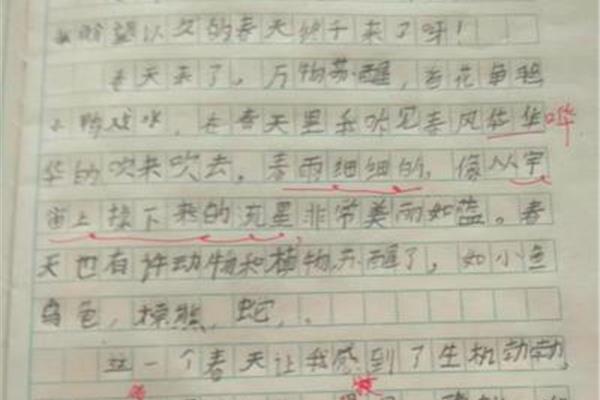 盼望以久的春天终于来了呀！
春天来了，万物苏醒，百花争艳
鸭戏水，在春天里我听见春风华华 哗
华的吹来吹去。春雨细细的，像从宇
宙上掉下来的流星，非常美丽如蓝。春
天也有许动物和植物苏醒了，如小鱼
乌龟，棕熊，蛇，.
这一个春天让我感到了生机动动，